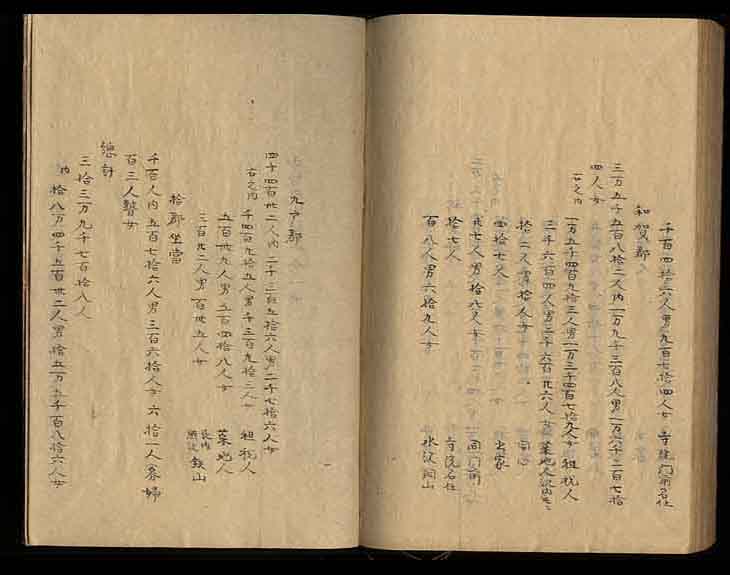 千百四拾六人男九百七拾四人女 寺院門前名任
和賀郡
三万五千五百八拾二人内一万九千三百八人男一万六千二百七拾
四人女
右之内 一万五千四百九拾三人男一万三千四百七拾九人女 租税人
三千六百四人男二千六百卅六人女 菜地人
拾六人男拾人女 同心
四拾七人 出家
卅七人男拾八人女 同門前
拾七人 寺院名任
百八人男六拾九人女 水沢銅山
九戸郡
四千四百卅二人内 二千三百五拾六人男 二千七拾六人女
右之内 千四百九拾五人男千三百九拾三人女 租税人
五百卅九人男五百四拾八人女 菜地人
三百卅二人男 百卅五人女 鉄山
拾郡坐当
千百人内五百七拾六人男三百六拾人女 六拾一人寡婦
百三人瞽女
惣計
三拾三万九千七百拾八人
内 拾八万四千五百卅二人男拾五万五千百八拾六人女